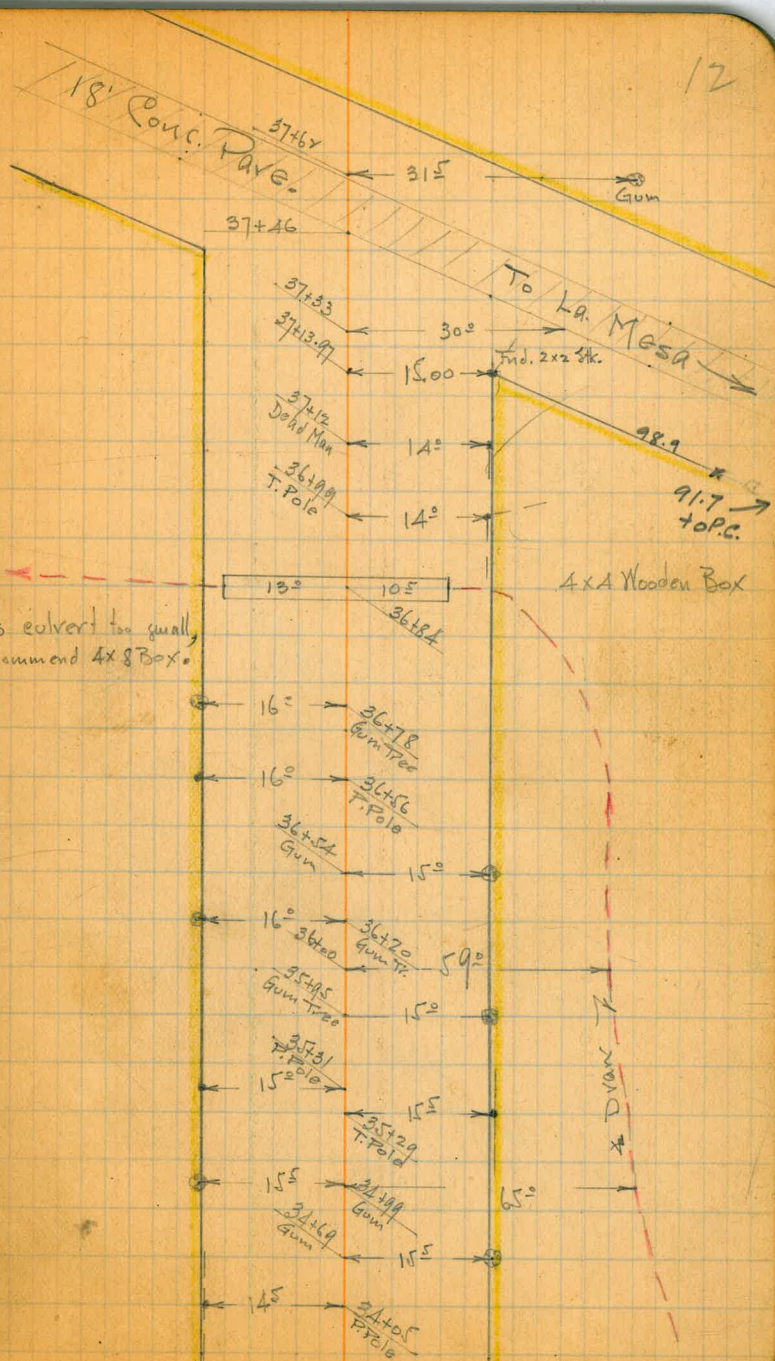 12
18' Conc. Pave.
37+62
31⁵
Gum
37+46
To La. Mesa
37+33
30⁰
37+13.97
15.00
Fnd. 2x2 Stk.
37+12
Dead Man
14⁰
98.9
36+99
T. Pole
14⁰
91.7
to P.C.
13⁰
10⁵
36+84
4x4 Wooden Box
culvert too small,
ommend 4x8 Box.
16⁰
36+78
Gum Tree
16⁰
36+56
P. Pole
36+54
Gum
15⁰
16⁰
36+20
Gum Tr.
36+00
59⁰
35+95
Gum Tree
15⁰
35+31
P. Pole
15⁰
15⁵
35+29
T. Pole
Draw
15⁵
34+99
Gum
65⁰
34+69
Gum
15⁵
14⁵
34+05
P. Pole